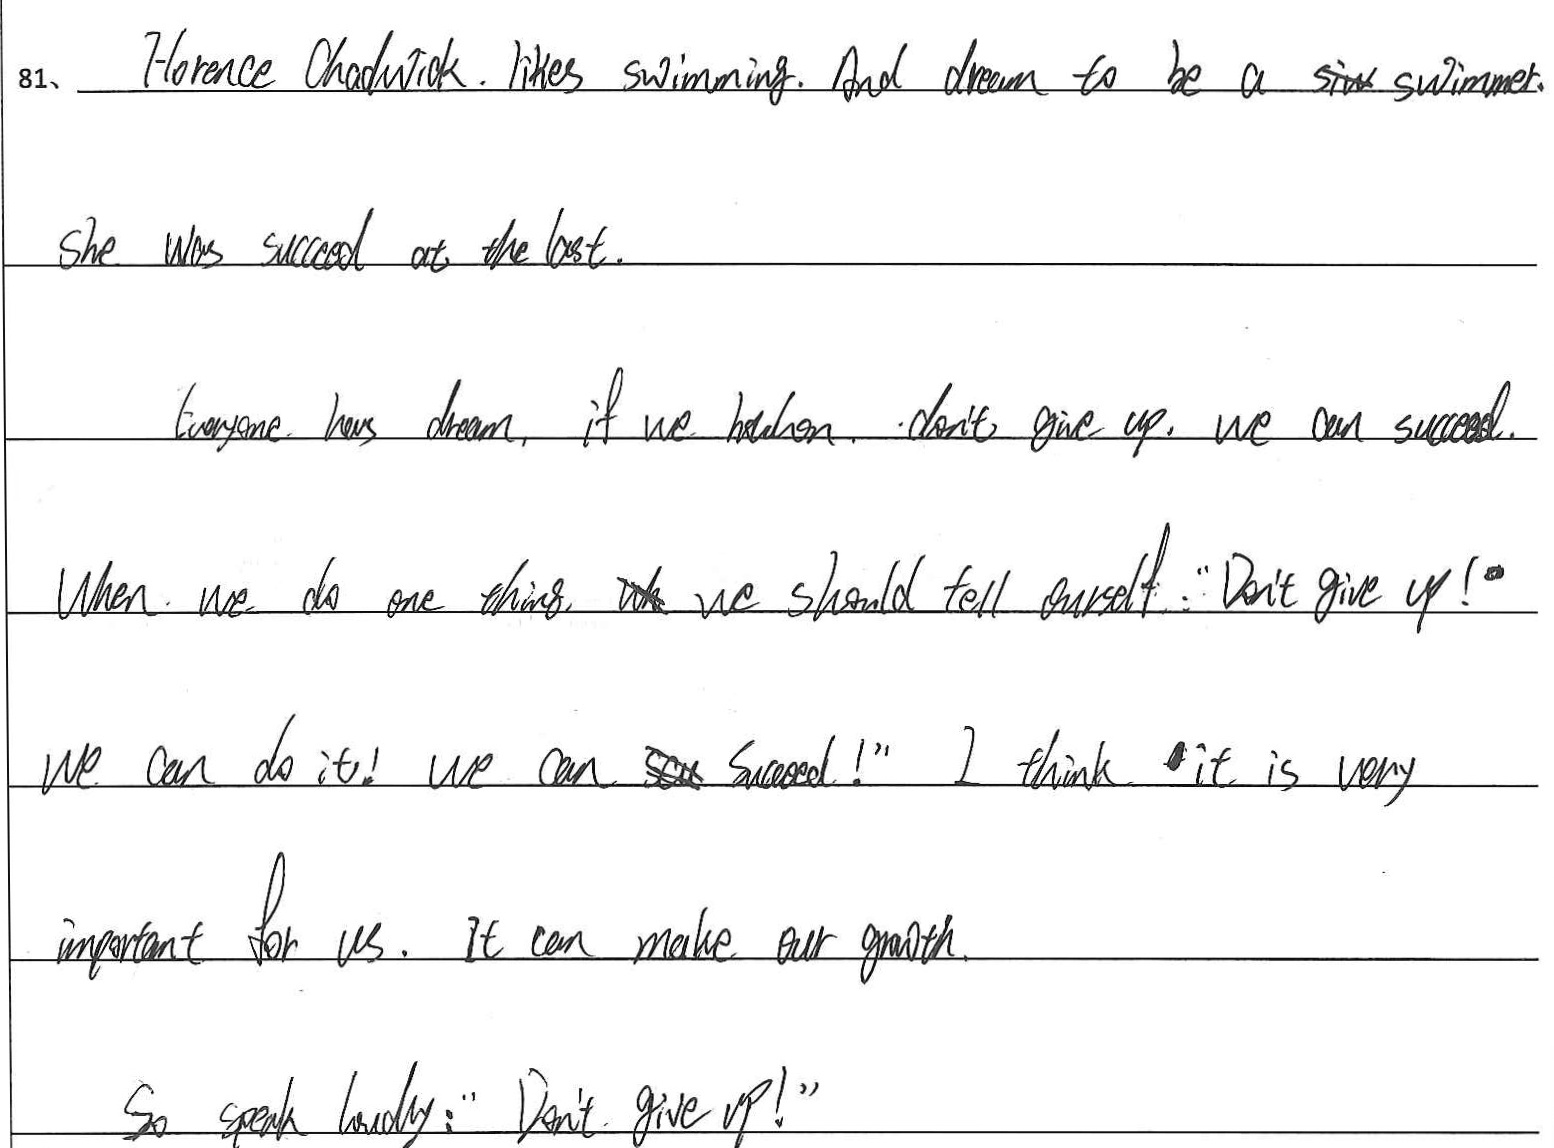 81、 Florence Chadwick. likes swimming. And dream to be a swimmer.
She was succeed at the last.
Everyone has dream, if we hold on. don't give up. we can succeed.
When we do one thing, we should tell ourself: "Don't give up!"
we can do it! we can succeed!" I think it is very
important for us. It can make our growth.
So speak loudly: "Don't give up!"